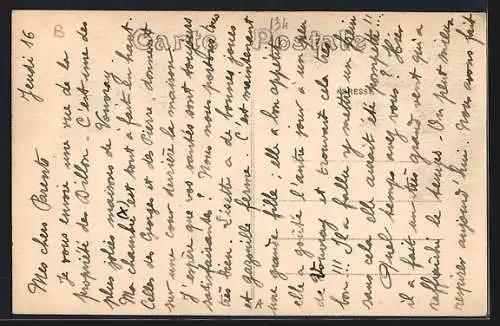 B
134
Carte Postale
ADRESSE
Jeudi 16
Mes chers Parents
Je vous envoie une vue de la
propriété des Dillon. C'est une des
plus jolies maisons de Vouvray
Ma chambre (X) est tout à fait en haut.
Celles des et des Pierre donnent
sur une cour derrière la maison
J'espère que vos santés sont toujours
satisfaisantes? Nous nous portons tous
très bien. Lisette a de bonnes joues
et gazouille ferme. C'est maintenant
une grande fille: elle a bon appétit
elle a goûté l'autre jour à un peu
de Vouvray et trouvait cela très
bon!!! Il a fallu y mettre un frein
sans cela elle aurait été pompette!!
Quel temps avez vous? Hier
il a fait un très grand vent qui a
raffraîchi le temps. On peut mieux
respirer aujourd'hui. Nous avons fait